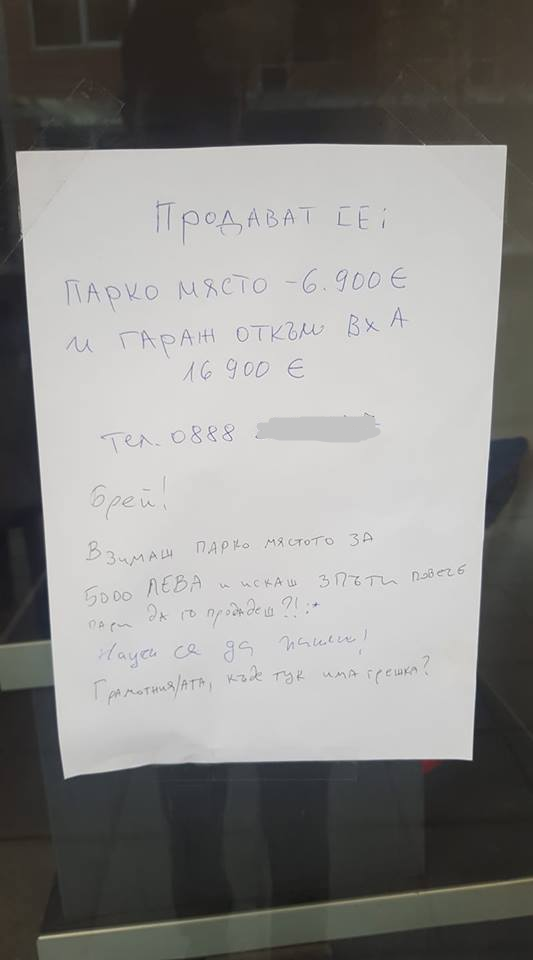 ПРОДАВАТ СЕ:
ПАРКО МЯСТО - 6.900 €
И ГАРАЖ ОТКЪМ ВХ А
16 900 €
ТЕЛ. 0888
Брей!
ВЗИМАШ ПАРКО МЯСТОТО ЗА
5000 ЛЕВА и искаш 3 ПЪТИ повече
пари да го продадеш?! :*
Научи се да пишеш!
ГРАМОТНИЯ/АТА, къде тук има грешка?